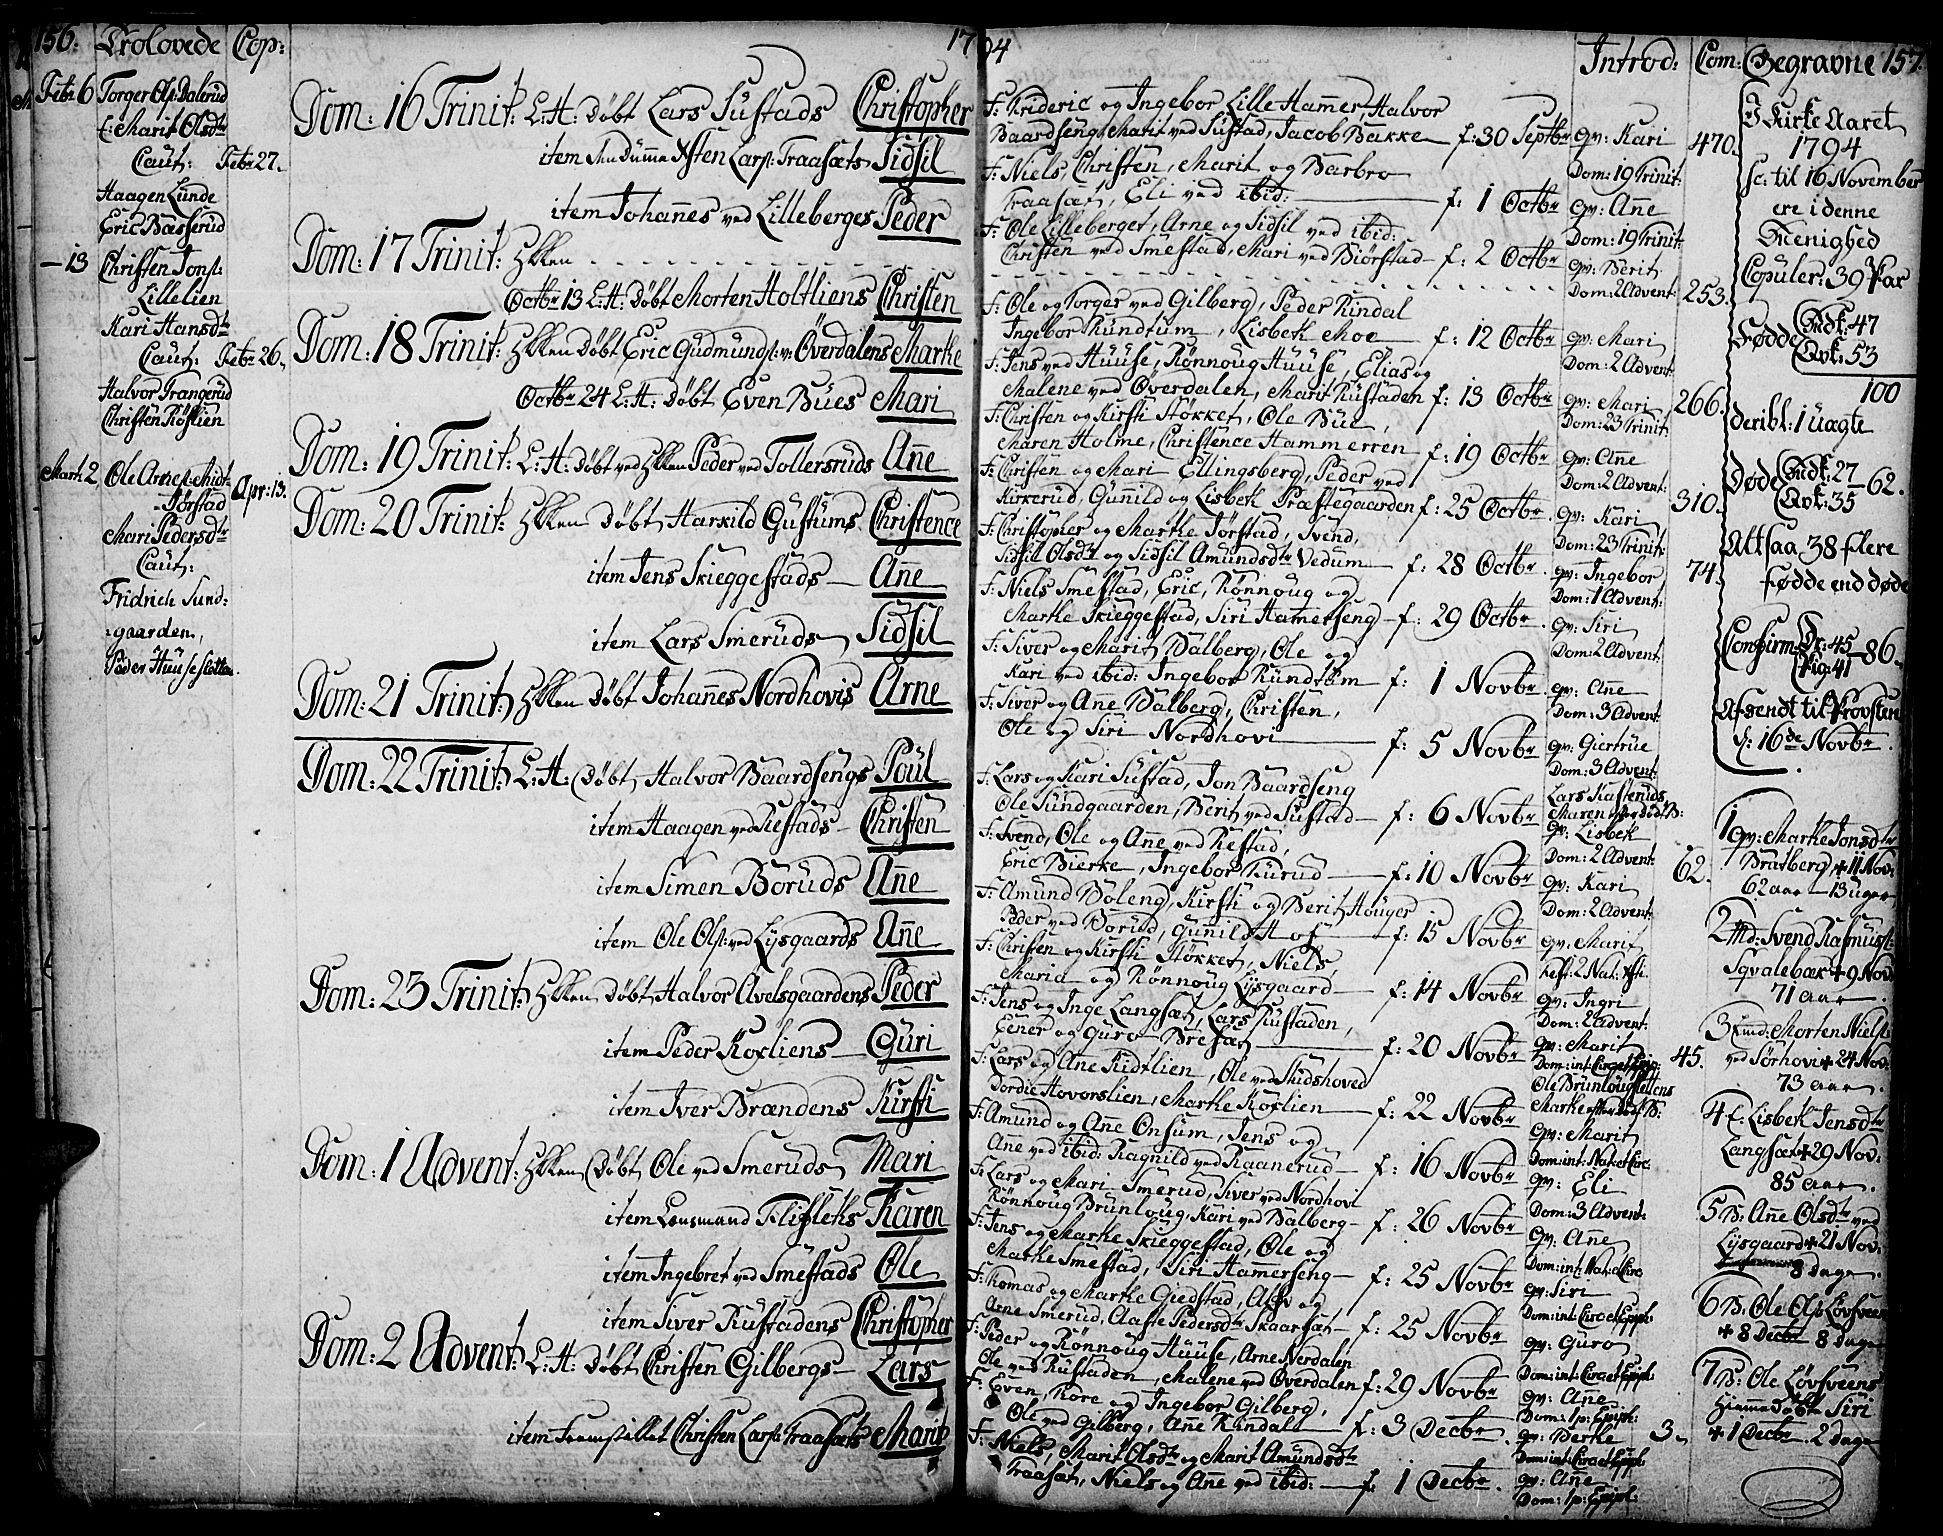 156. Trolovede Cop: 1794 Introd: Com: Begravne 157.
Febr 6 Torger Ols: Dalerud
f: Marit Olsdtr
Caut: Febr 27.
Haagen Lunde
Eric Bæsserud
— 13 Christen Jons:
Lillelien
Kari Hansdtr
Caut: Febr 26.
Halvor Trangerud
Christen Röslien
Mart: 2 Ole Arnes: Midt-
Jörstad Apr: 13.
Mari Pedersdtr
Caut:
Fridrich Sund:
gaarden,
Peder Huuseslotten.
Dom: 16 Trinit: L:H: Döbt Lars Sustads Christopher
item Lars: Traasæts Sidsil
item Johañes ved Lilleberges Peder
Dom: 17 Trinit:
Octbr 13 L:H: Döbt Morten Holtliens Christen
Dom: 18 Trinit: Döbt Eric Gudmunds: v: Överdalens Marthe
Octbr 24 L:H: Döbt Even Bües Mari
Dom: 19 Trinit: L:H: Döbt ved Peder ved Tollersruds Añe
Dom: 20 Trinit: Döbt Harkild Gustums Christence
item Jens Skieggestads — Añe
item Lars Smeruds Sidsil
Dom: 21 Trinit: Döbt Johañes Nordhovis Arne
Dom: 22 Trinit: L:H: Döbt Halvor Baardsengs Poül
item Haagen ved Sustads — Christen
item Simen Boruds Añe
item Ole Ols: ved Lysgaards Añe
Dom: 23 Trinit: Döbt Halvor Avelsgaardens Peder
item Peder Koxliens — Guri
item Iver Brændens Kirsti
Dom: 1 Advent: Döbt Ole ved Smeruds Mari
item Lensmand Flifleths Karen
item Ingebret ved Smestads Ole
item Siver Rustadens Christopher
Dom: 2 Advent: L:H: Döbt Christen Gilbergs — Lars
item Fremstillet Christen Lars: Traasæts Marit
F: Frideric og Ingebor Lille Hamer, Halvor
Baardseng, Marit ved Sustad, Jacob Bakke — f: 30 Septbr
F: Niels, Christen, Marit og Barbro
Traasæt, Eli ved ibid: — f: 1 Octbr
F: Ole Lilleberget, Arne og Sidsil ved ibid:
Christen ved Smestad, Mari ved Biörstad — f: 2 Octbr
F: Ole og Torger ved Gilberg, Peder Kindal
Ingebor Rundtum, Lisbeth Moe — f: 12 Octbr
F: Jens ved Huuse, Rönnoug Huuse, Elias og
Malene ved Överdalen, Marit Rustaden f: 13 Octbr
F: Christen og Kirsti Stokket, Ole Bue,
Maren Holme, Christence Hammerren — f: 19 Octbr
F: Christen og Mari Ellingsberg, Peder ved
Kirkerud, Guñild og Lisbeth Præstegaarden f: 25 Octbr
F: Christopher og Marthe Jörstad, Svend,
Sidsil Olsdtr og Sidsil Amundsdtr Vedum — f: 28 Octbr
F: Niels Smestad, Eric, Rönnoug og
Marthe Skieggestad, Siri Hamerseng — f: 29 Octbr
F: Siver og Marit Balberg, Ole og
Kari ved ibid: Ingebor Rundtom — f: 1 Novbr
F: Siver og Ane Balberg, Christen,
Ole og Siri Nordhovi — f: 5 Novbr
F: Lars og Kari Sustad, Jon Baardseng
Ole Sundgaarden, Berit ved Sustad — f: 6 Novbr
F: Svend, Ole og Añe ved Restad,
Eric Bierke, Ingebor Rurud — f: 10 Novbr
F: Amund Boleng, Kirsti og Berit Houger
Peder ved Borud, Guñild Hof — f: 15 Novbr
F: Christen og Kirsti Stokket, Niels,
Maria og Rönnoug Lysgaard — f: 14 Novbr
F: Jens og Inge Langsæt, Lars Rustaden,
Ener og Guro Bresæt — f: 20 Novbr
F: Lars og Ane Kidtlien, Ole ved Skidshoved
Dordie Hovorslien, Marthe Koxlien — f: 22 Novbr
F: Amund og Añe Onsum, Jens og
Añe ved ibid: Ragnild ved Raanerud — f: 16 Novbr
F: Lars og Mari Smerud, Siver ved Nordhovi
Rönnoug Brunloug, Kari ved Balberg — f: 26 Novbr
F: Jens og Marthe Skieggestad, Ole og
Marthe Smestad, Siri Hamerseng — f: 25 Novbr
F: Thomas og Marthe Giedstad, og
Arne Smerud, Pedersdtr Skaarsæt — f: 25 Novbr
F: Peder og Rönnoug Huuse, Arne Nerdalen
Ole ved Rustaden, Malene ved Överdalen f: 29 Novbr
F: Even, Tore og Ingebor Gilberg,
Ole ved Gilberg, Añe Kindal — f: 3 Decbr
F: Niels, Marit Olsdtr og Marit Amundsdtr
Traasæt, Niels og Añe ved ibid: — f: 1 Decbr.
qv: Kari 470.
Dom: 19 Trinit:
qv: Añe
Dom: 19 Trinit:
qv: Berit
Dom: 2 Advent: 253.
qv: Mari
Dom: 2 Advent:
qv: Mari 266.
Dom: 23 Trinit:
qv: Añe
Dom: 2 Advent: 310.
qv: Kari
Dom: 23 Trinit:
qv: Ingebor 74.
Dom: 1 Advent:
qv: Siri
Dom: 2 Advent:
qv: Añe
Dom: 3 Advent:
qv: Giertrue
Dom: 3 Advent:
Lars Kasteruds
Maren efter död B:
qv: Lisbeth
Dom: 2 Advent: 62.
qv: Kari
Dom: 2 Advent:
qv: Marit
Fest: 2 Nat: Xsti.
qv: Ingri
Dom: 2 Advent:
qv: Marit
Dom: int: Circ et Epip: 45.
Ole Brunlougslettens
Marthe efter död B:
qv: Marit
Dom: int: Nat et Circ:
qv: Eli
Dom: 3 Advent:
qv: Ane
Dom: int: Nat et Circ
qv: Siri
Dom: int: Circ et Epiph:
qv: Guro
Dom: int: Circ et Epiph:
qv: Añe
Dom: 1 p: Epiph:
qv: Berthe 3.
Dom: int: Circ et Epiph:
qv: Añe
Dom: 1 p: Epiph:
I Kirke Aaret
1794
sc: til 16 November
ere i denne
Menighed
Copuler: 39 Par
Födde Mdk: 47
Qvk: 53
100
deribl: 1 uægte
Døde Mdk: 27 — 62.
Qvk: 35
Altsaa 38 flere
fødde end døde
Confirm: Dr: 45 — 86.
Pig: 41
Afsendt til Provsten
d: 16de Novbr.
1 qv: Marthe Jonsdtr
Bratberg + 11 Nov:
62 aar — 13 uger
2 Md: Svend Rasmus:
Sqvalebæk + 9 Nov:
71 aar.
3 Md: Morten Niels:
ved Sörhovi + 24 Nov:
73 aar.
4 E: Lisbeth Jensdtr
Langsæt + 29 Nov:
85 aar.
5 B: Añe Olsdtr ved
Lysgaard + 21 Nov:
8 dage.
6 B: Ole Ols: Lövsveen
+ 8 Decbr 8 dage
7 B: Ole Lövsveens
Hiemedöbte Siri
+ 1 Decbr. 2 dage